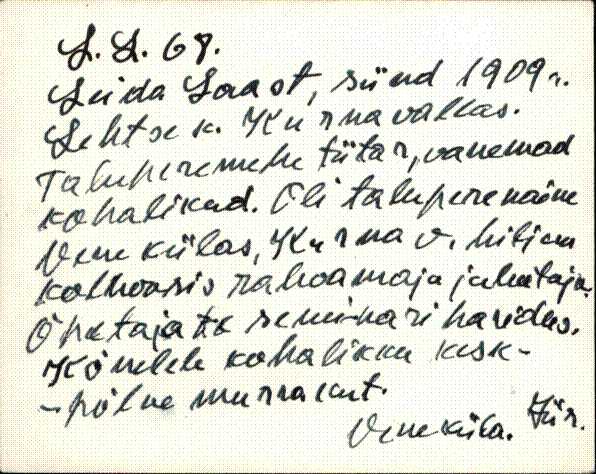 L. L. 68.
Leida Laast, sünd 1909 a.
Lehtse k. Kurna vallas.
Taluperemehe tütar, vanemad
kohalikud. Oli taluperenaine
Venekülas, Kurna v. hiljem
kolhoosis rahvamaja juhataja.
Õpetajate seminari haridus.
Kõneleb kohalikku kesk-
-põlve murrakut.
Veneküla. Jür.